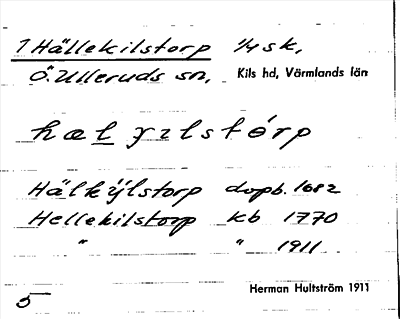 1 Hällekilstorp ¼ sk,
Ö. Ulleruds sn, Kils hd, Värmlands län
hæl yılstórp
Hälkijlstorp dopb. 1682
Hellekilstorp kb 1770
" " 1911
Herman Hultström 1911
5